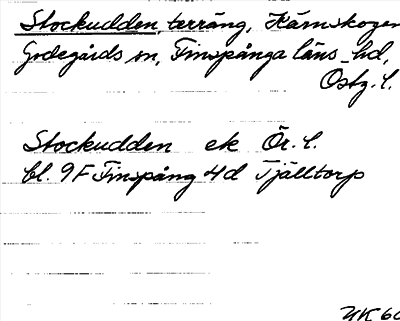 Stockudden, terräng, Kärnskogen
Godegårds sn, Finspånga läns hd,
Östg. l.
Stockudden ek Ör. l.
bl. 9F Finspång 4d Tjälltorp
UK 60